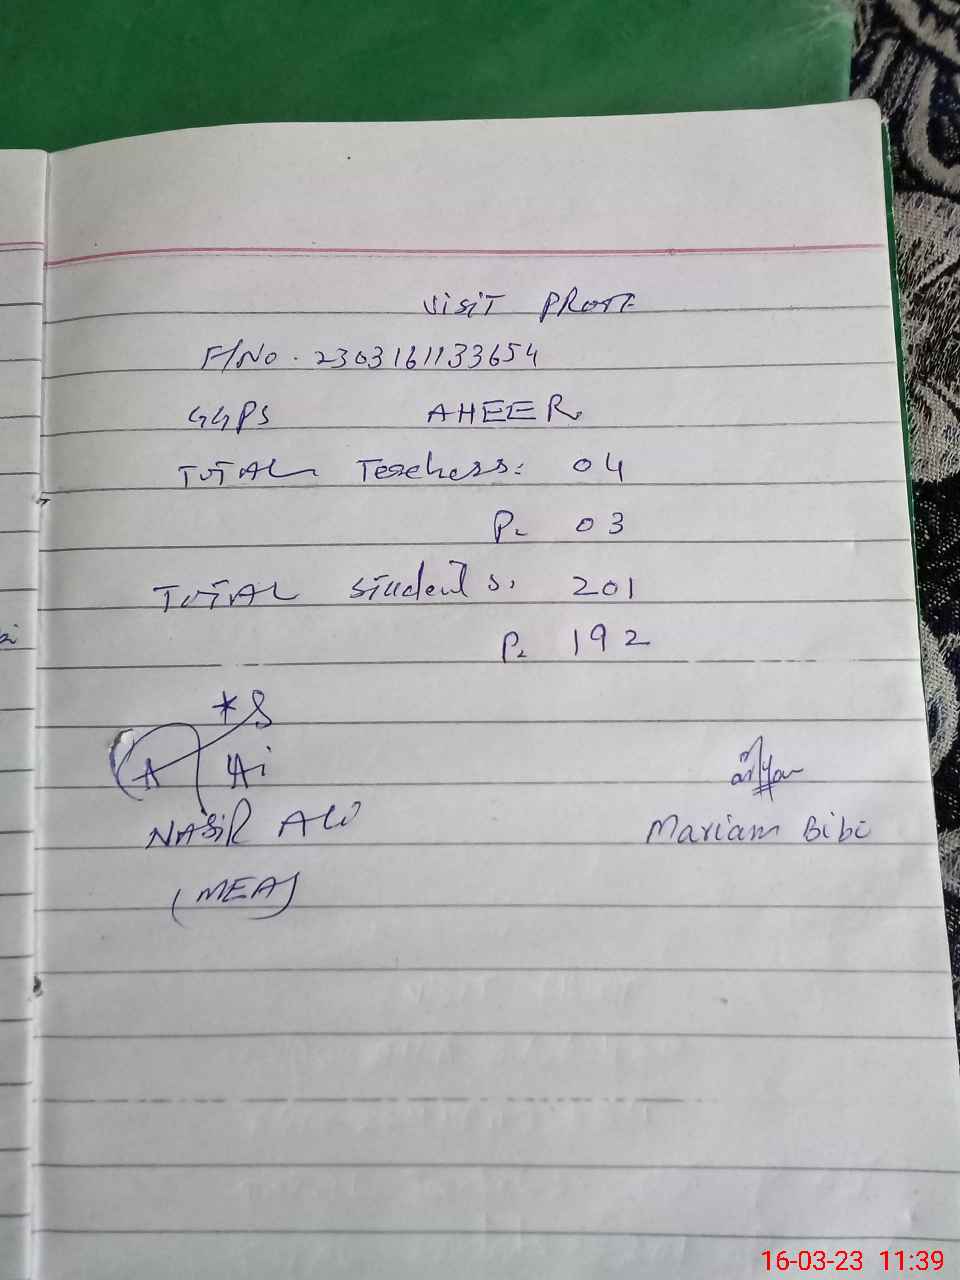 VISIT PROOF
F/No. 2303161133654
GGPS AHEER
TOTAL Teachers: 04
P. 03
TOTAL Students. 201
P. 192
NASIR ALI
(MEA)
Mariam Bibi
16-03-23 11:39